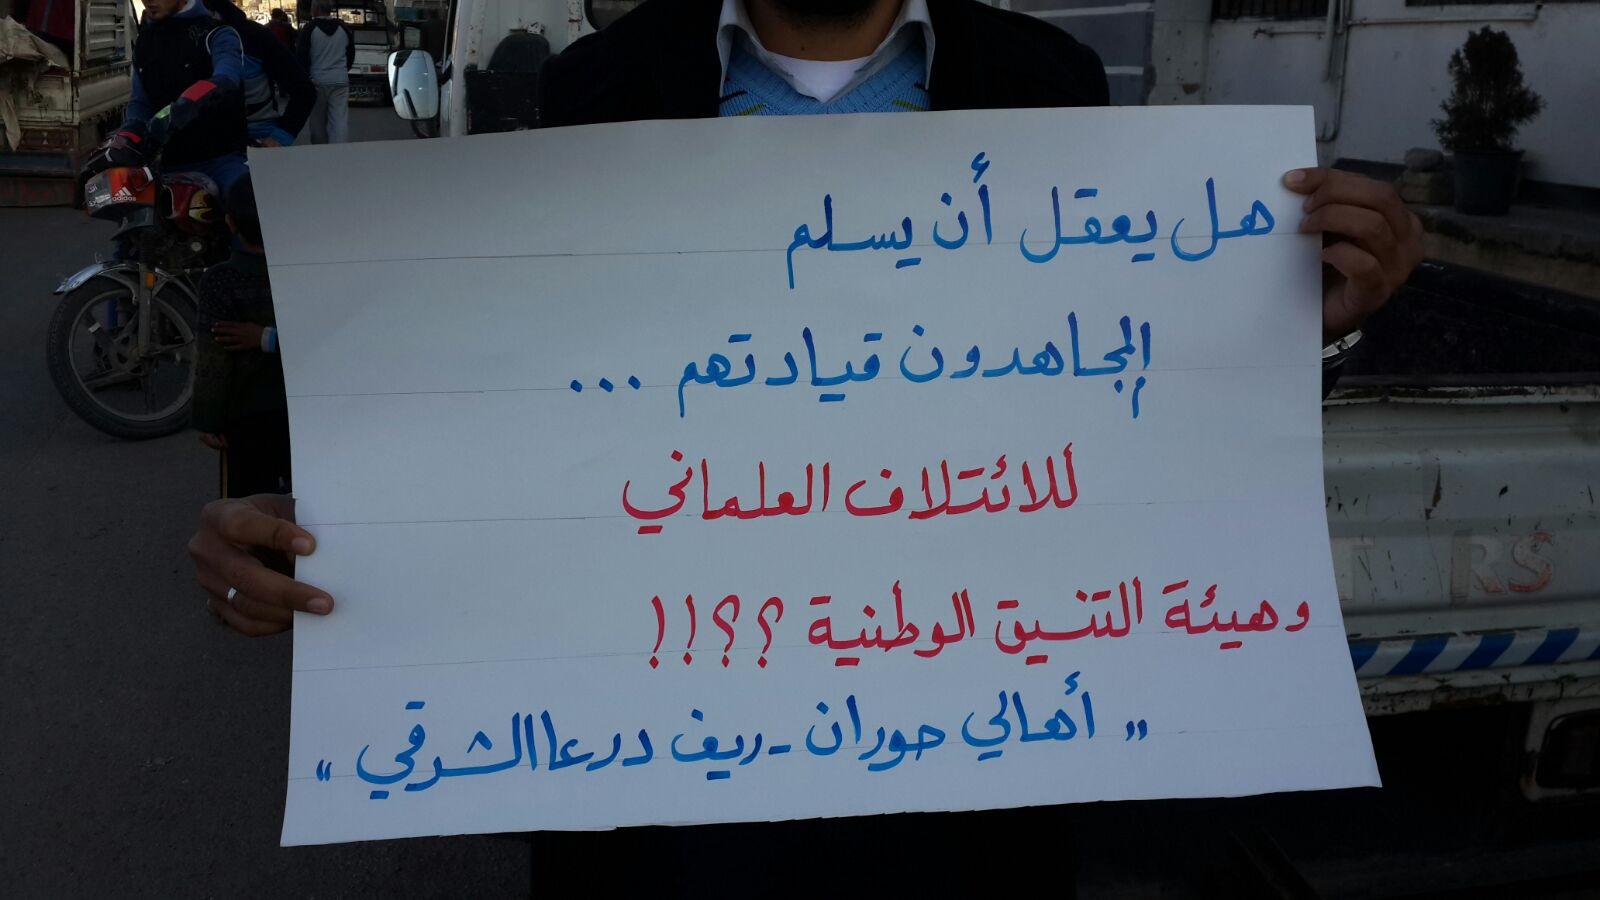 هل يعقل أن يسلم
المجاهدون قيادتهم ...
للائتلاف العلماني
وهيئة التنسيق الوطنية ؟؟!!
„ أهالي حوران - ريف درعا الشرقي “
adidas
RS